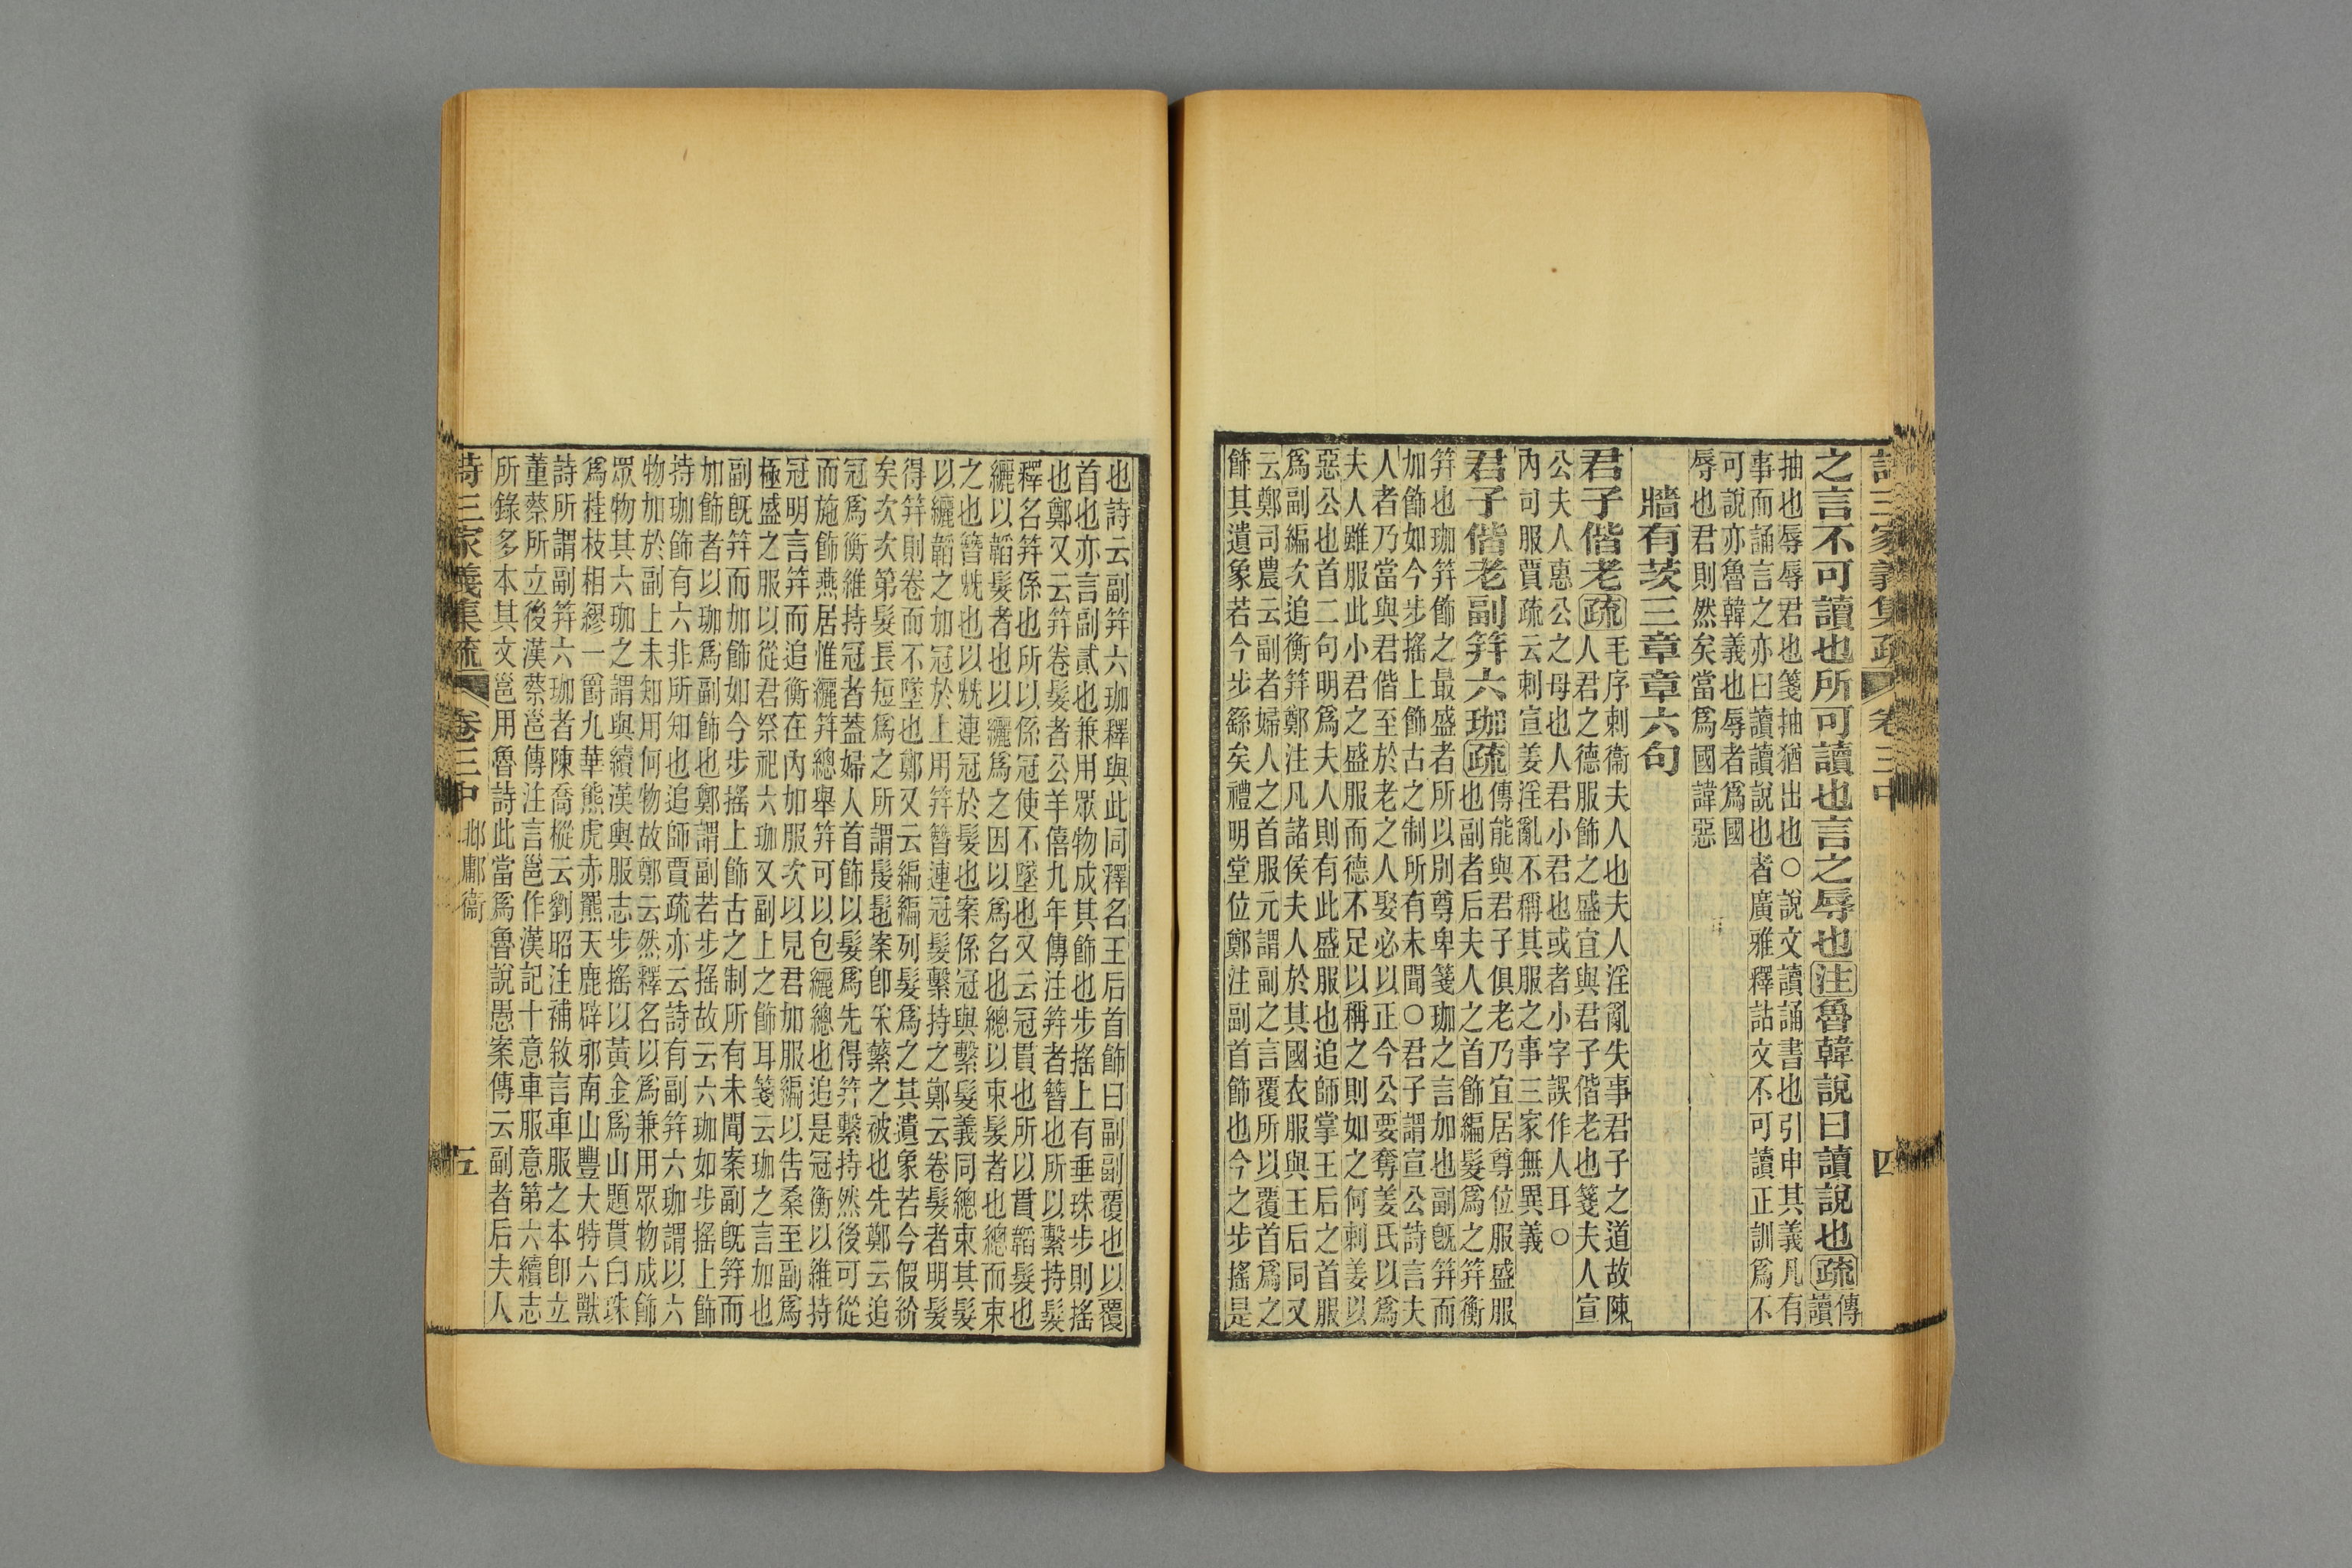 詩三家義集疏 卷三中 四
之言不可讀也所可讀也言之辱也注魯韓說曰讀說也疏傳
讀
抽也辱辱君也箋抽猶出也○說文讀誦書也引申其義凡有
事而誦言之亦曰讀讀說也者廣雅釋詁文不可讀正訓爲不
可說亦魯韓義也辱者爲國
辱也君則然矣當爲國諱惡
牆有茨三章章六句
君子偕老疏毛序刺衞夫人也夫人淫亂失事君子之道故陳
人君之德服飾之盛宜與君子偕老也箋夫人宣
公夫人惠公之母也人君小君也或者小字誤作人耳○
內司服賈疏云刺宣姜淫亂不稱其服之事三家無異義
君子偕老副笄六珈疏傳能與君子俱老乃宜居尊位服盛服
也副者后夫人之首飾編髮爲之笄衡
笄也珈笄飾之最盛者所以別尊卑箋珈之言加也副旣笄而
加飾如今步搖上飾古之制所有未聞○君子謂宣公詩言夫
人者乃當與君偕至於老之人娶必以正今公要奪姜氏以爲
夫人雖服此小君之盛服而德不足以稱之則如之何刺姜以
惡公也首二句明爲夫人則有此盛服也追師掌王后之首服
爲副編次追衡笄鄭注凡諸侯夫人於其國衣服與王后同又
云鄭司農云副者婦人之首服元謂副之言覆所以覆首爲之
飾其遺象若今步繇矣禮明堂位鄭注副首飾也今之步搖是
也詩云副笄六珈釋與此同釋名王后首飾曰副副覆也以覆
首也亦言副貳也兼用眾物成其飾也步搖上有垂珠步則搖
也鄭又云笄卷髮者公羊僖九年傳注笄者簪也所以繫持髮
釋名笄係也所以係冠使不墜也又云冠貫也所以貫韜髮也
纚以韜髮者也以纚爲之因以爲名也總以束髮者也總而束
之也簪兟也以兟連冠於髮也案係冠與繫髮義同總束其髮
以纚韜之加冠於上用笄簪連冠髮繫持之鄭云卷髮者明髮
得笄則卷而不墜也鄭又云編編列髮爲之其遺象若今假紒
矣次次第髮長短爲之所謂髲髢案卽采蘩之被也先鄭云追
冠爲衡維持冠者蓋婦人首飾以髮爲先得笄繫持然後可從
而施飾燕居惟纚笄總舉笄可以包纚總也追是冠衡以維持
冠明言笄而追衡在內加服次以見君加服編以告桑至副爲
極盛之服以從君祭祀六珈又副上之飾耳箋云珈之言加也
副旣笄而加飾如今步搖上飾古之制所有未聞案副旣笄而
加飾者以珈爲副飾也鄭謂副若步搖故云六珈如步搖上飾
持珈飾有六非所知也追師賈疏亦云詩有副笄六珈謂以六
物加於副上未知用何物故鄭云然釋名以爲兼用眾物成飾
眾物其六珈之謂與續漢輿服志步搖以黃金爲山題貫白珠
爲桂枝相繆一爵九華熊虎赤羆天鹿辟邪南山豐大特六獸
詩所謂副笄六珈者陳喬樅云劉昭注補敍言車服之本卽立
董蔡所立後漢蔡邕傳注言邕作漢記十意車服意第六續志
所錄多本其文邕用魯詩此當爲魯說愚案傳云副者后夫人
詩三家義集疏 卷三中 邶鄘衞 五